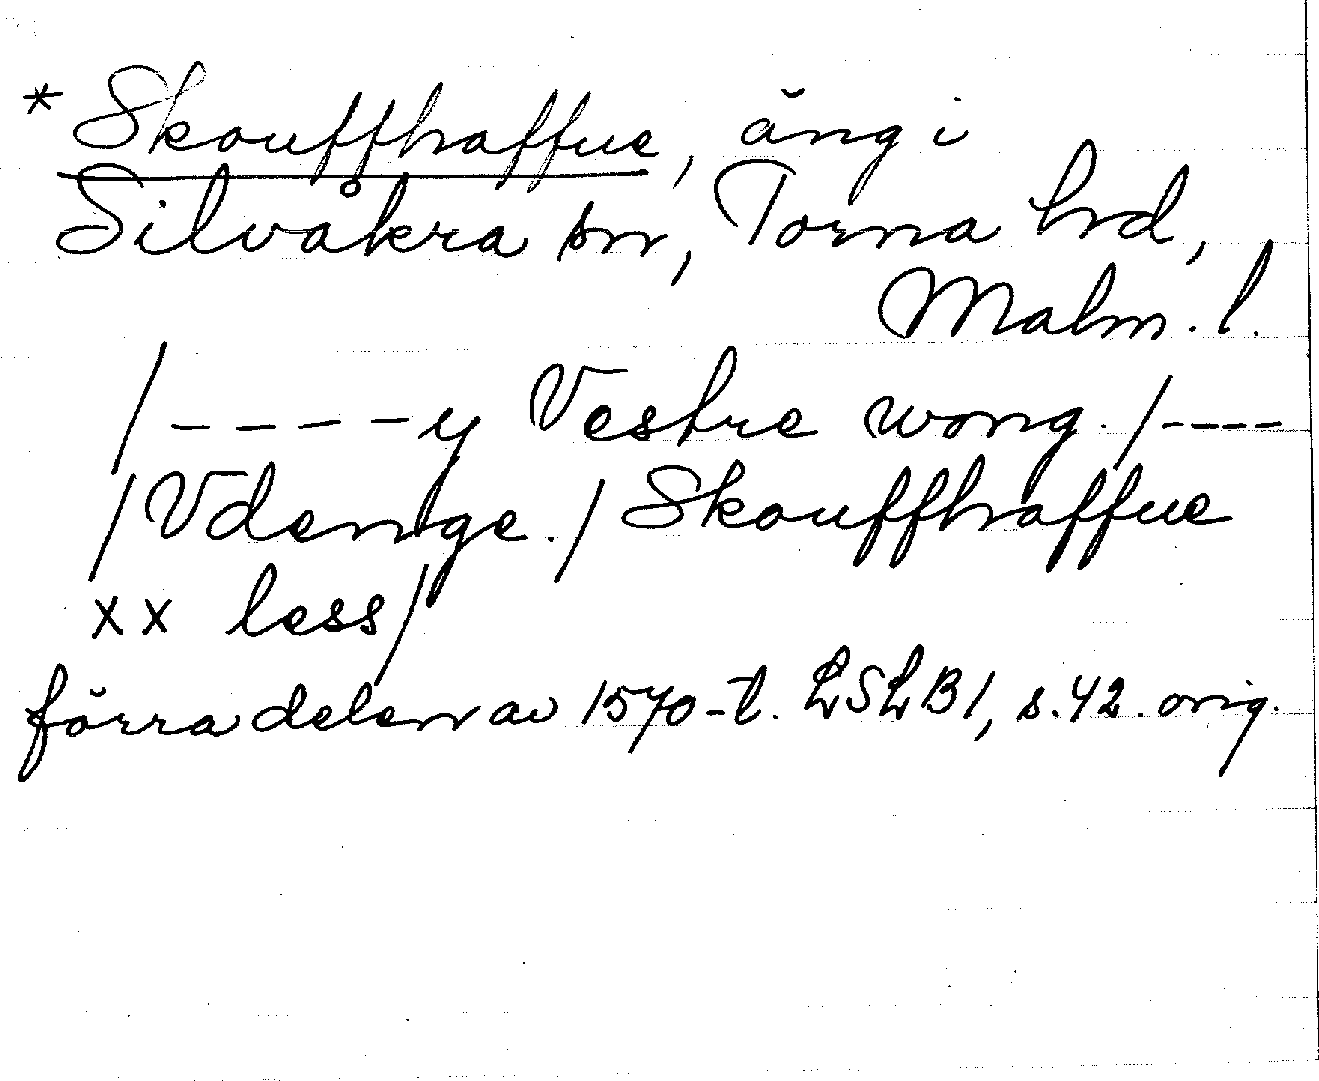 * Skouffhaffue, äng i
Silvåkra sn, Torna hd,
Malm. l.
/ - - - - - y Vestre wong. / - - - -
/ Vdenge. / Skouffhaffue
xx less /
förra delen av 1570-t. LSLB1, s. 42. orig.